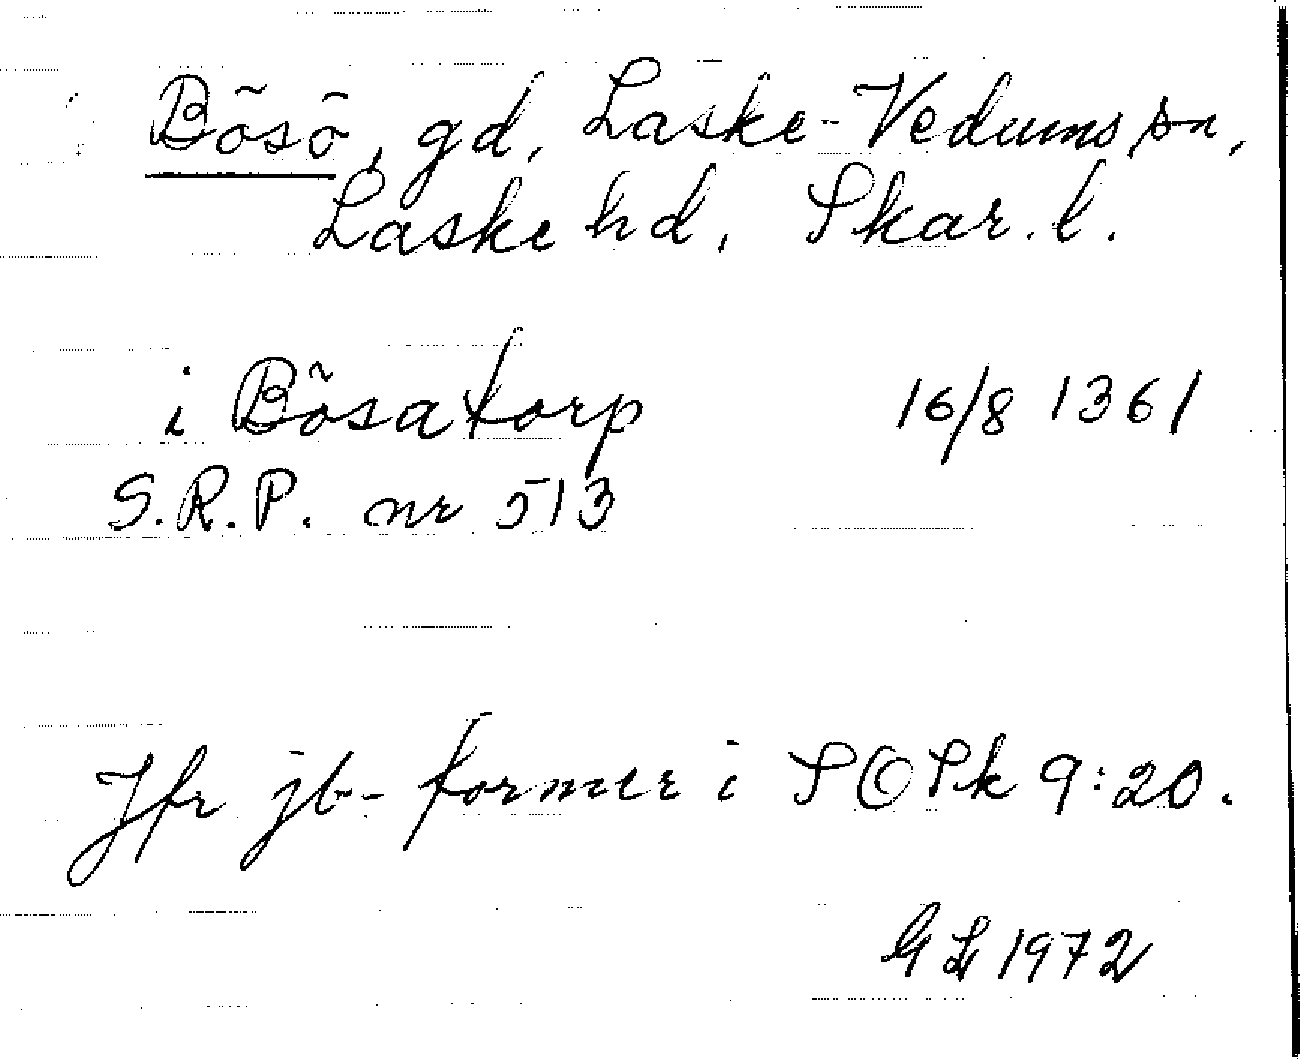 Bösö, gd, Laske-Vedums sn,
Laske hd, Skar. l.
i Bösatorp 16/8 1361
S.R.P. nr 513
Jfr jb-former i SOSk 9:20.
GL 1972